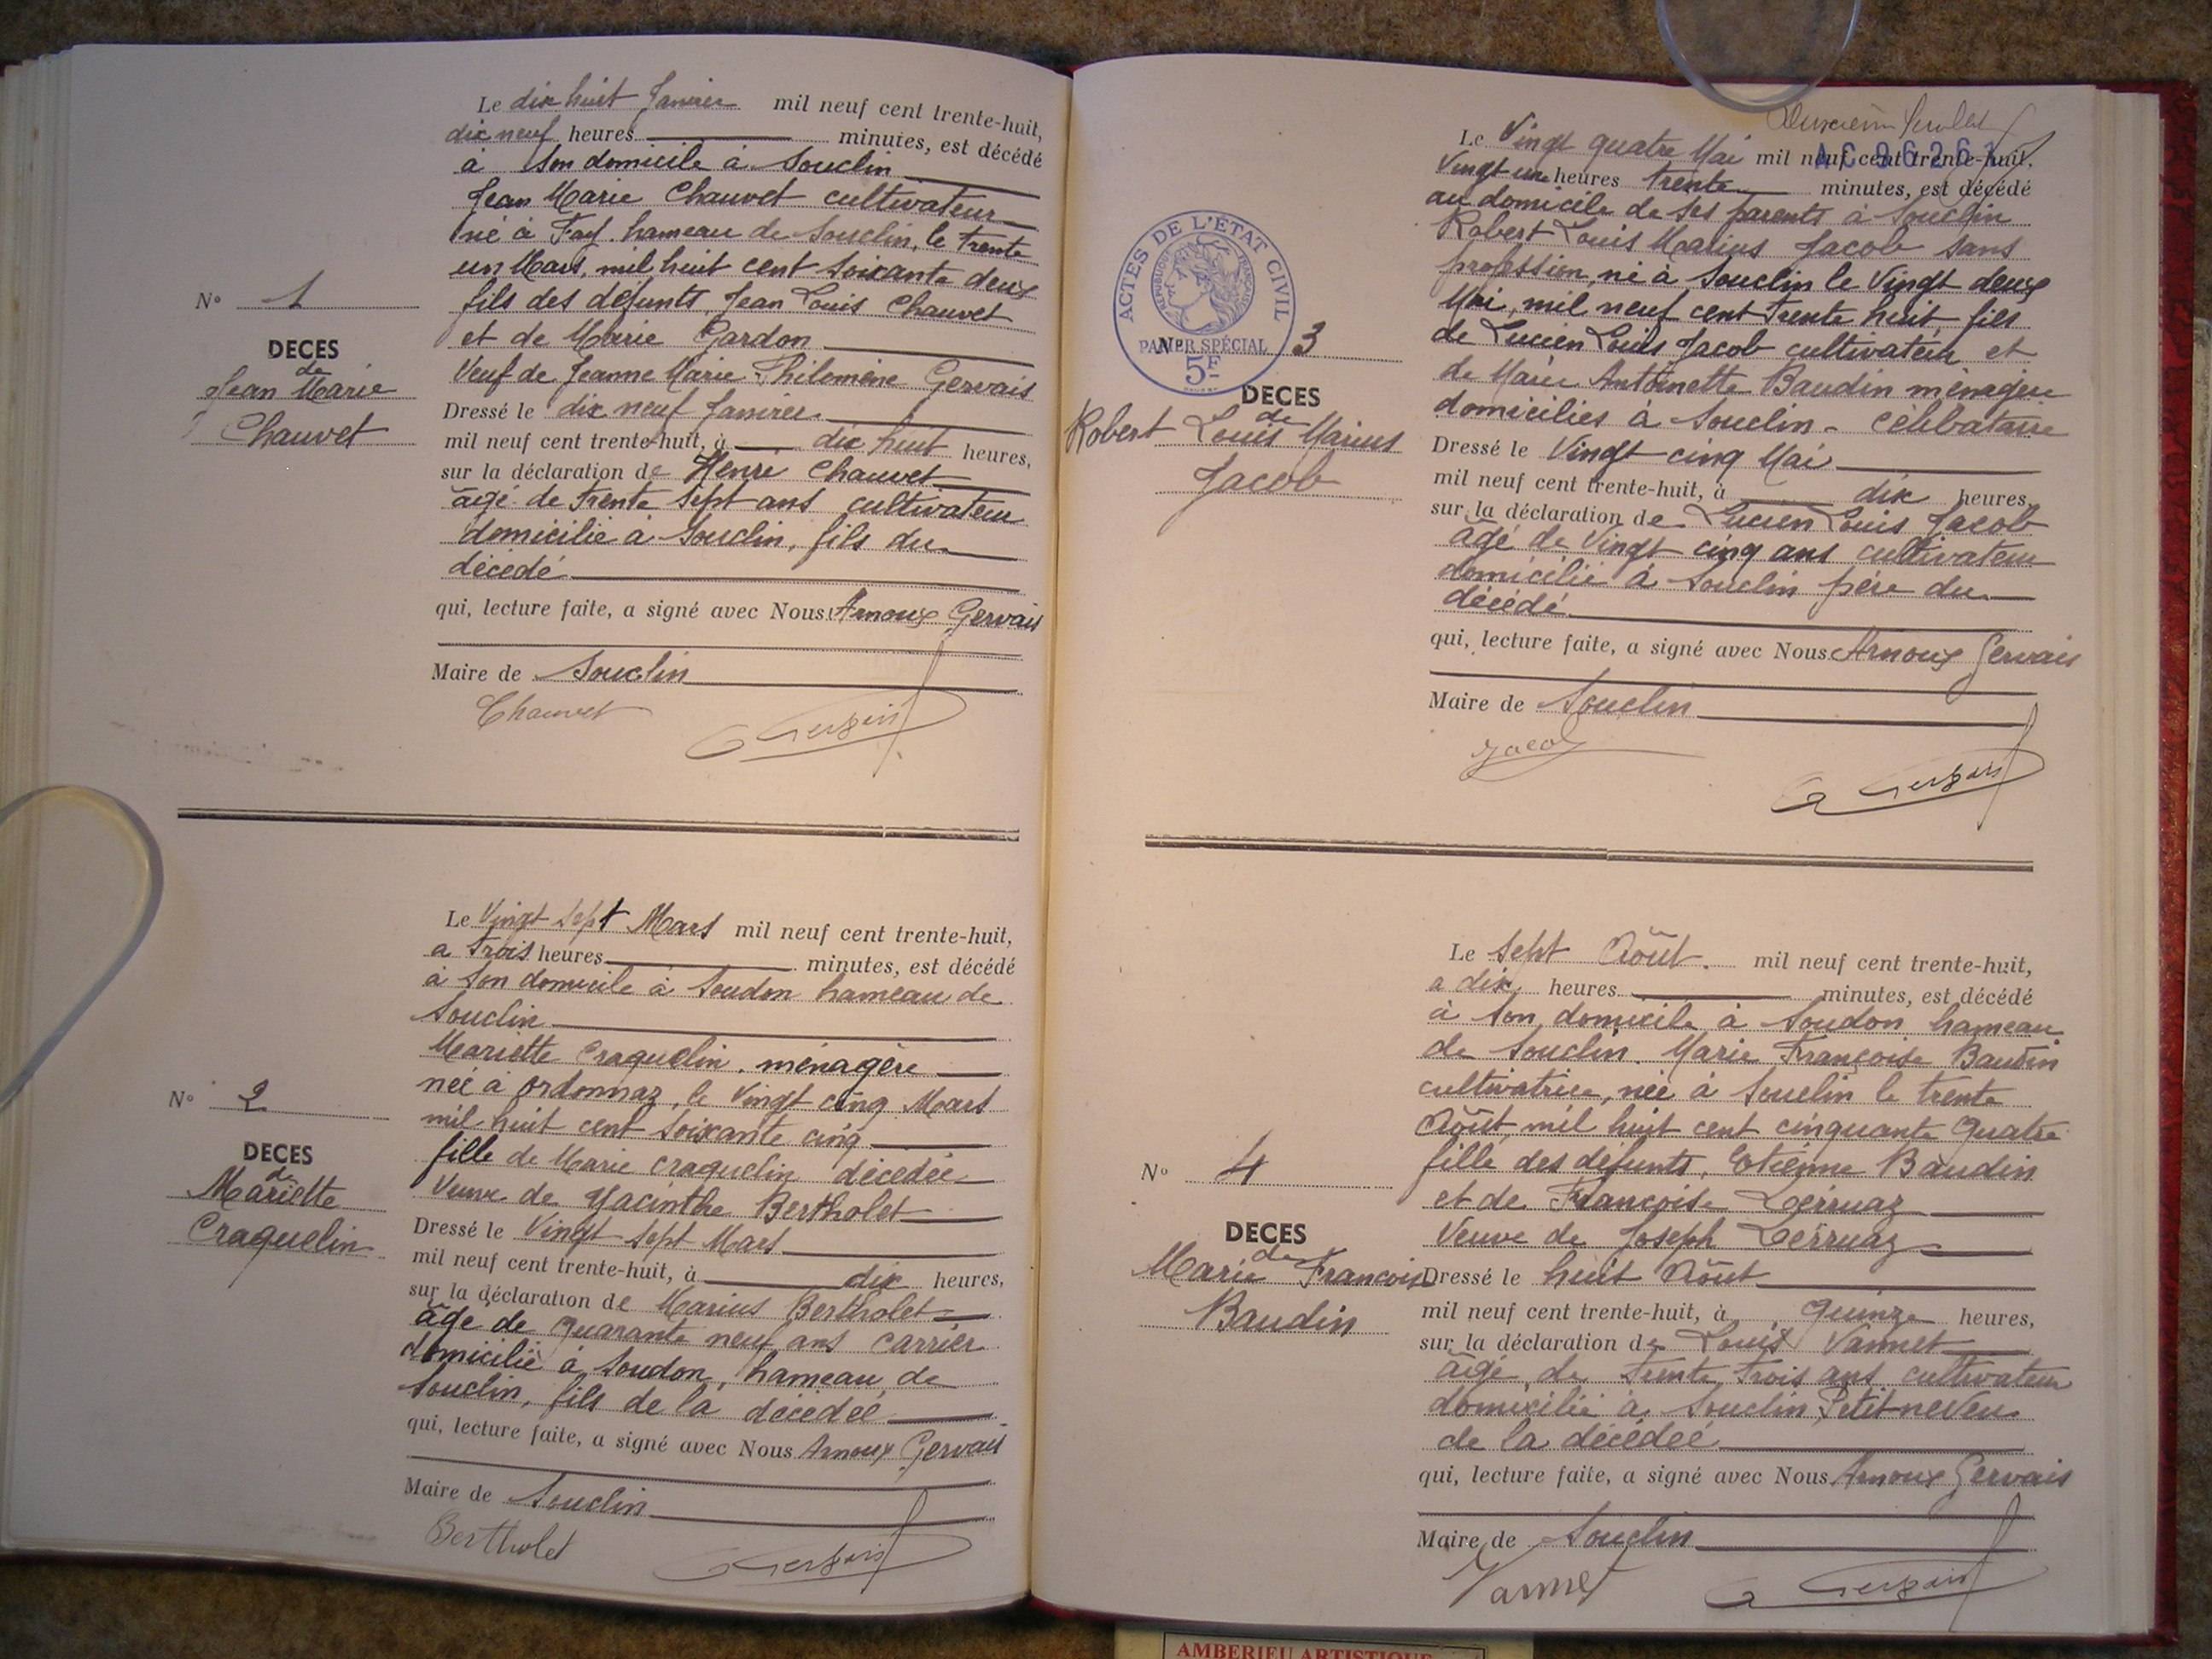 Le dix huit Janvier mil neuf cent trente-huit,
dix neuf heures minutes, est décédé
à son domicile à Souclin
Jean Marie Chauvet cultivateur
né à Fay hameau de Souclin, le trente
un Mars, mil huit cent soixante deux
fils des défunts, Jean Louis Chauvet
et de Marie Gardon
Veuf de Jeanne Marie Philomène Gervais
Dressé le dix neuf Janvier
mil neuf cent trente-huit, à dix huit heures,
sur la déclaration de Henri Chauvet
âgé de trente sept ans cultivateur
domicilié à Souclin, fils du
décédé
qui, lecture faite, a signé avec Nous Arnoux Gervais
Maire de Souclin
Chauvet
N° 1
DECES
de
Jean Marie
Chauvet
Le Vingt sept Mars mil neuf cent trente-huit,
a trois heures minutes, est décédé
à son domicile à Soudon hameau de
Souclin
Mariette Craquelin, ménagère
née à Ordonnaz, le Vingt cinq Mars
mil huit cent soixante cinq
fille de Marie Craquelin décédée
Veuve de Hyacinthe Bertholet
Dressé le Vingt sept Mars
mil neuf cent trente-huit, à dix heures,
sur la déclaration de Marius Bertholet
âgé de quarante neuf ans carrier
domicilié à Soudon, hameau de
Souclin, fils de la décédée
qui, lecture faite, a signé avec Nous Arnoux Gervais
Maire de Souclin
Bertholet
N° 2
DECES
de
Mariette
Craquelin
Le Vingt quatre Mai mil neuf cent trente-huit.
Vingt une heures trente minutes, est décédé
au domicile de ses parents à Souclin
Robert Louis Marius Jacob sans
profession, né à Souclin le Vingt deux
Mai, mil neuf cent trente huit, fils
de Lucien Louis Jacob cultivateur et
de Marie Antoinette Baudin ménagère
domiciliés à Souclin - célibataire
Dressé le Vingt cinq Mai
mil neuf cent trente-huit, à dix heures,
sur la déclaration de Lucien Louis Jacob
âgé de Vingt cinq ans cultivateur
domicilié à Souclin père du
décédé
qui, lecture faite, a signé avec Nous Arnoux Gervais
Maire de Souclin
Jacob
ACTES DE L'ÉTAT CIVIL
RÉPUBLIQUE FRANÇAISE
PAPIER SPÉCIAL
5F
N° 3
DECES
de
Robert Louis Marius
Jacob
Le sept Août mil neuf cent trente-huit,
a dix heures minutes, est décédé
à son domicile à Soudon hameau
de Souclin. Marie Françoise Baudin
cultivatrice, née à Souclin le trente
Août mil huit cent cinquante quatre
fille des défunts, Etienne Baudin
et de Françoise
Veuve de Joseph
Dressé le huit Août
mil neuf cent trente-huit, à quinze heures,
sur la déclaration de Louis Vannet
âgé de trente trois ans cultivateur
domicilié à Souclin, Petit neveu
de la décédée
qui, lecture faite, a signé avec Nous Arnoux Gervais
Maire de Souclin
Vannet
N° 4
DECES
de
Marie Françoise
Baudin
AMBERIEU ARTISTIQUE